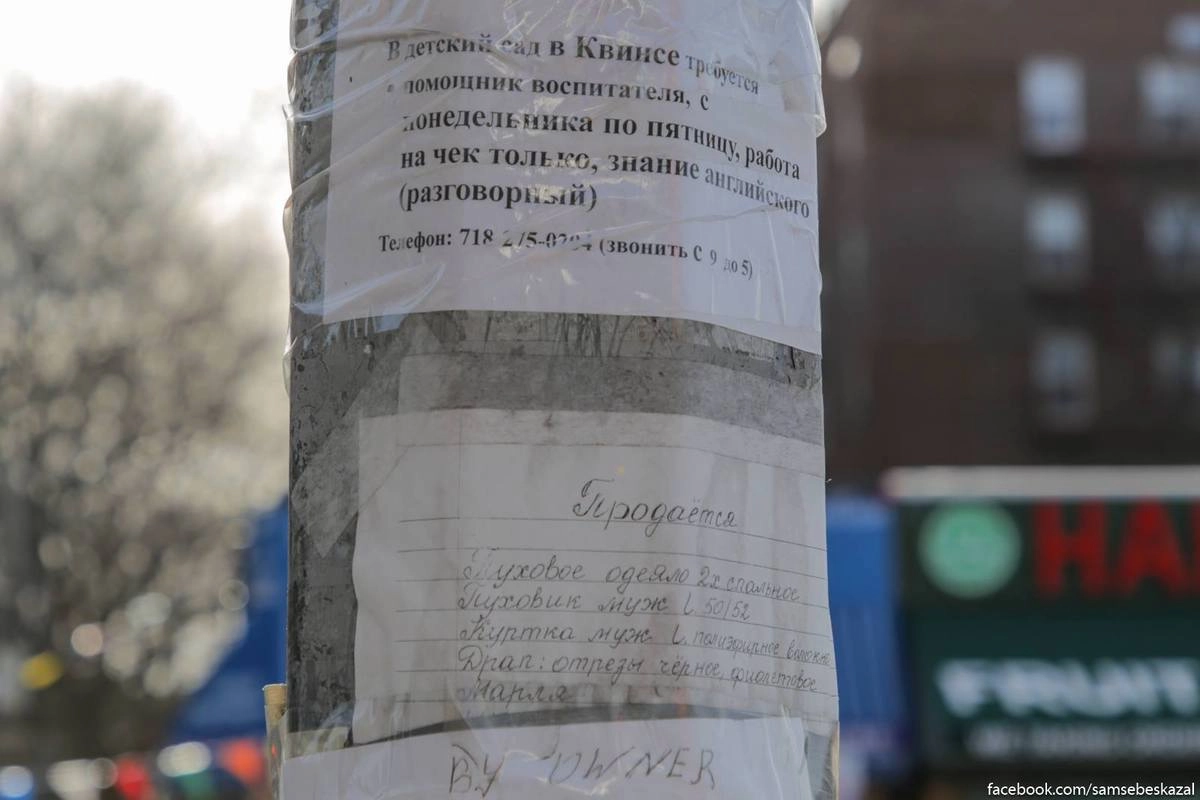 В детский сад в Квинсе требуется
помощник воспитателя, с
понедельника по пятницу, работа
на чек только, знание английского
(разговорный)
Телефон: 718 (звонить с 9 до 5)
Продаётся
Пуховое одеяло 2х спальное
Пуховик муж L 50/52
Куртка муж L полиэфирное волокно
Драп: отрезы чёрное, фиолетовое
Марля
BY OWNER
HA
FRUIT
facebook.com/samsebeskazal